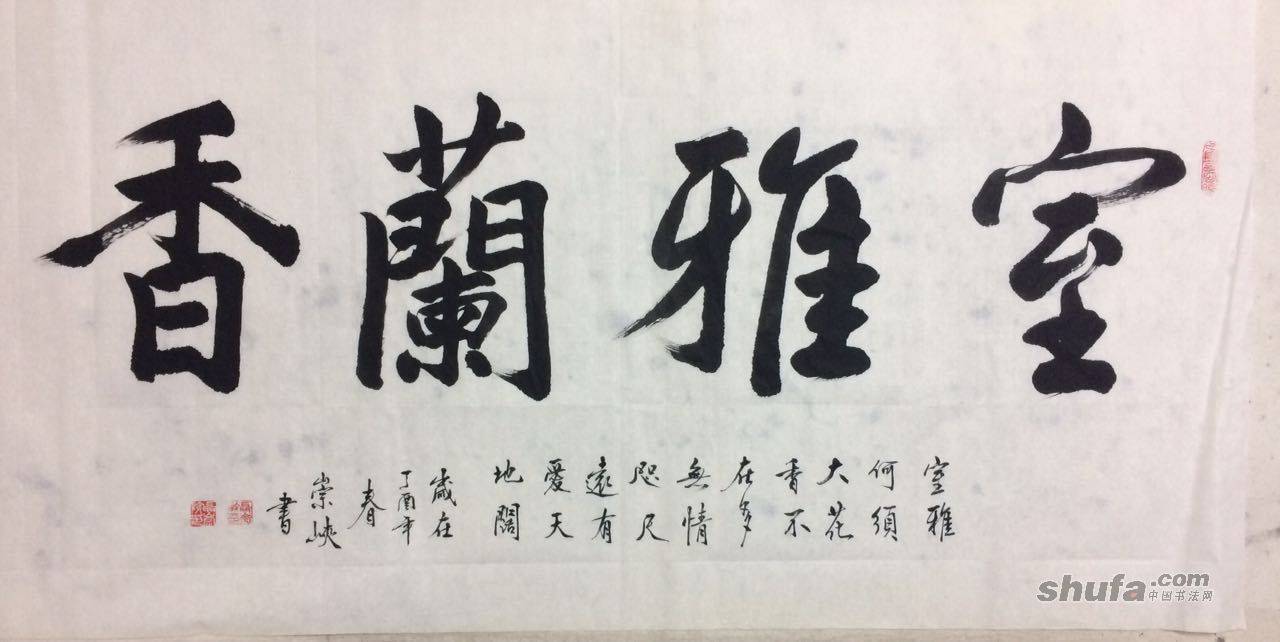 室雅蘭香
室雅
何須
大花
香不
在多
無情
咫尺
遠有
愛天
地闊
歲在
丁酉年
春
崇峽
書
shufa.com
中国书法网